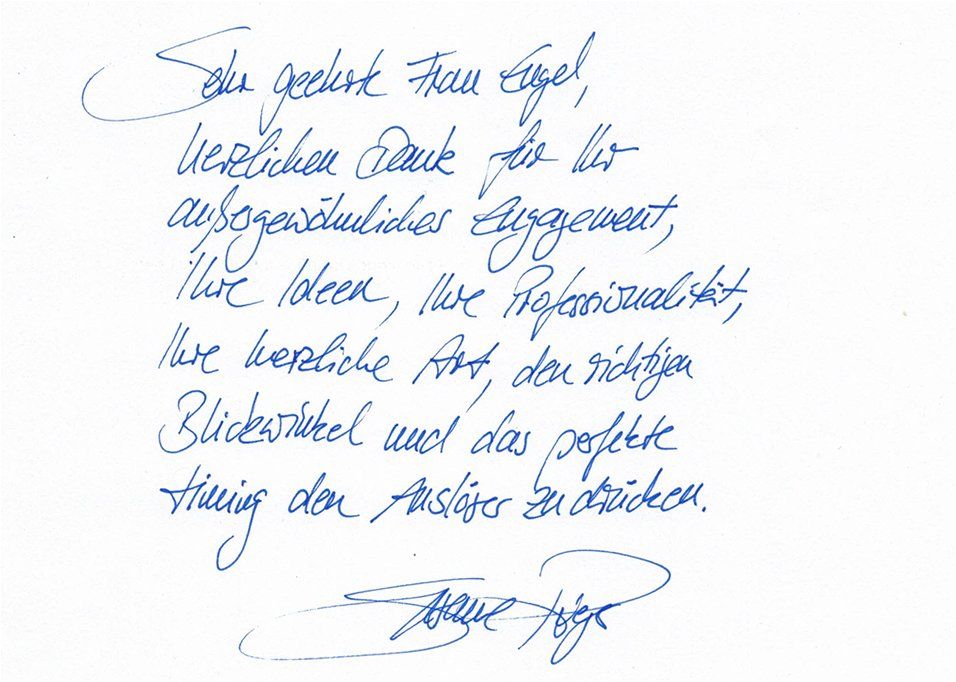 Sehr geehrte Frau Engel,
herzlichen Dank für Ihr
außergewöhnliches Engagement,
Ihre Ideen, Ihre Professionalität,
Ihre herzliche Art, den richtigen
Blickwinkel und das perfekte
timing den Auslöser zu drücken.